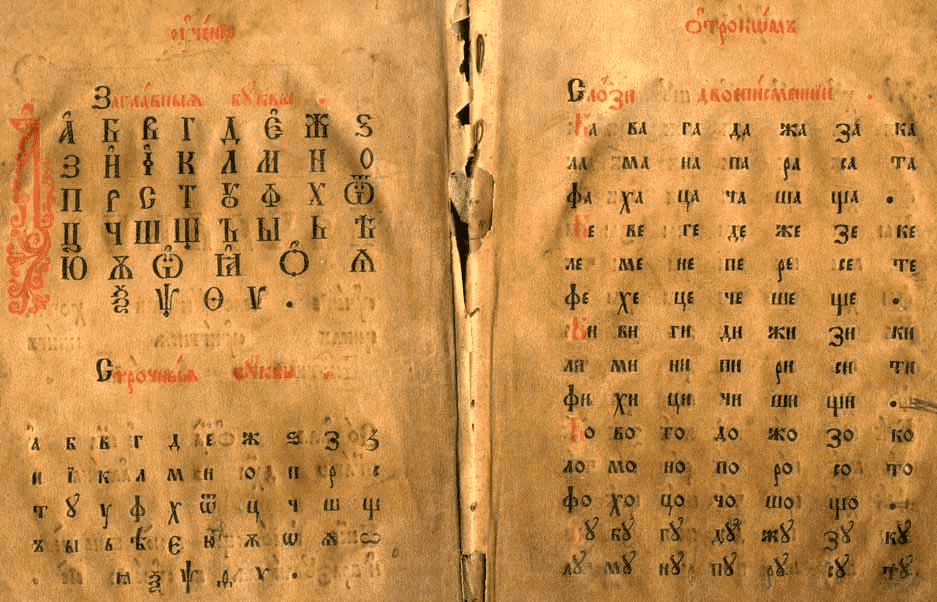 ᲂу҆че́нїе
Загла́вныѧ бꙋ́квы .
А҆ Б В Г Д Є҆ Ж Ѕ
З И҆ І҆ К Л М Н О
П Р С Т Ꙋ Ф Х Ѿ
Ц Ч Ш Щ Ъ Ы Ь Ѣ
Ю҆ Ѫ Ѡ҆ Ꙗ҆ Ѻ҆ Ѧ
Ѯ Ѱ Ѳ Ѵ .
Стро́чныѧ бꙋ́квы .
а б в г д е ж ѕ з ꙁ
и ї к л м н ю д п р с
т ꙋ у ф х ѿ ц ч ш щ
ъ ы ь ѣ є ю ѫ ѡ ѧ ѽ
ѯ ѱ ѵ .
ѻ҆трокѡ́мъ
Сло́зи двоепи́сменнїи .
Ба ва га да жа за ка
ла ма на па ра са та
фа ха ца ча ша ща .
Бе ве ге де же зе ке
ле ме не пе ре се те
фе хе це че ше ще .
Би ви ги ди жи зи ки
ли ми ни пи ри си ти
фи хи ци чи ши щи .
Бо во го до жо зо ко
ло мо но по ро со то
фо хо цо чо шо що .
Бꙋ вꙋ гꙋ дꙋ жꙋ зꙋ кꙋ
лꙋ мꙋ нꙋ пꙋ рꙋ сꙋ тꙋ